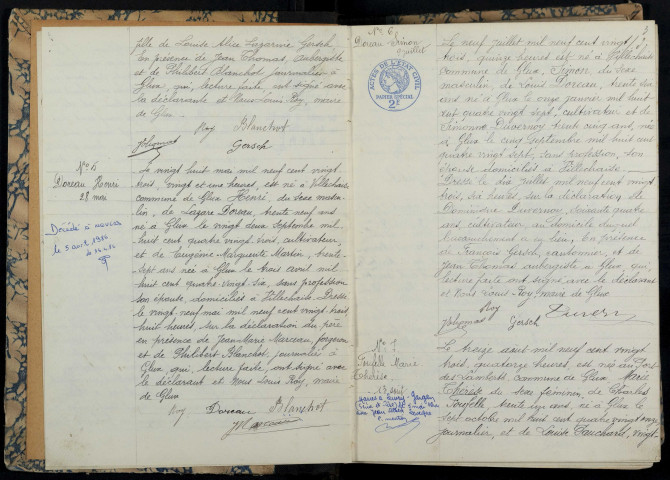 fille de Louise Alice Lazarine Gersch.
En présence de Jean Thomas, aubergiste
et de Philibert Blanchot journalier à
Glux, qui, lecture faite, ont signé avec
la déclarante et Nous Louis Roy, maire
de Glux
Roy Blanchot
JThomas Gersch
N° 5
Doreau Henri
28 mai
Décédé à
le 5 avril
Le vingt huit mai mil neuf cent vingt
trois, vingt et une heures, est né à Villechaise
commune de Glux Henri, du sexe mascu-
lin, de Lazare Doreau, trente neuf ans
né à Glux le vingt deux Septembre mil
huit cent quatre vingt trois, cultivateur,
et de Eugénie Marguerite Martin, trente-
sept ans née à Glux le trois avril mil
huit cent quatre vingt six, sans profession
son épouse, domiciliés à Villechaise. Dressé
le vingt neuf mai mil neuf cent vingt trois,
huit heures, sur la déclaration du père
en présence de Jean Marie Marceau, forgeron
et de Philibert Blanchot, journalier à
Glux qui, lecture faite, ont signé avec
le déclarant et Nous Louis Roy, maire
de Glux
Roy Doreau Blanchot
N° 6
Doreau Simon
9 juillet
ACTES DE L'ETAT CIVIL
PAPIER SPECIAL
2F
3
Le neuf juillet mil neuf cent vingt
trois, quinze heures est né à Villechaise
commune de Glux, Simon, du sexe
masculin, de Louis Doreau, trente six
ans né à Glux le onze janvier mil huit
cent quatre vingt sept, cultivateur et de
Duvernoy trente cinq ans, née
à Glux le cinq Septembre mil huit cent
quatre vingt sept, sans profession, son
épouse domiciliés à Villechaise.
Dressé le dix juillet mil neuf cent vingt
trois, six heures, sur la déclaration de
Dominique Duvernoy, soixante quatre
ans, cultivateur, au domicile duquel
l'accouchement a eu lieu, En présence
de François Gersch, cantonnier, et de
Jean Thomas aubergiste à Glux, qui,
lecture faite ont signé avec le déclarant
et Nous Louis Roy, maire de Glux
Roy
JThomas Gersch
N° 7
Marie
Thérèse
13 août
Le treize août mil neuf cent vingt
trois, quatorze heures, est née
commune de Glux Marie
Thérèse du sexe féminin, de Charles
trente un ans, né à Glux le
sept octobre mil huit cent quatre vingt onze
journalier, et de Louise Cauchard, vingt-